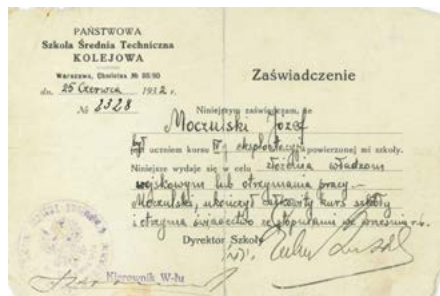 PAŃSTWOWA
Szkoła Średnia Techniczna
KOLEJOWA
Warszawa, Chmielna № 88/90
dn. 25 Czerwca 1932 r.
№ 2328
Zaświadczenie
Niniejszym zaświadczam, że
Moczulski Józef
był uczniem kursu IV eksploatacyj. powierzonej mi szkoły.
Niniejsze wydaje się w celu złożenia władzom
wojskowym lub otrzymania pracy.—
Moczulski, ukończył całkowity kurs szkoły
i otrzyma świadectwo z egzaminu we wrześniu r.b.
Dyrektor Szkoły
Kierownik W-łu